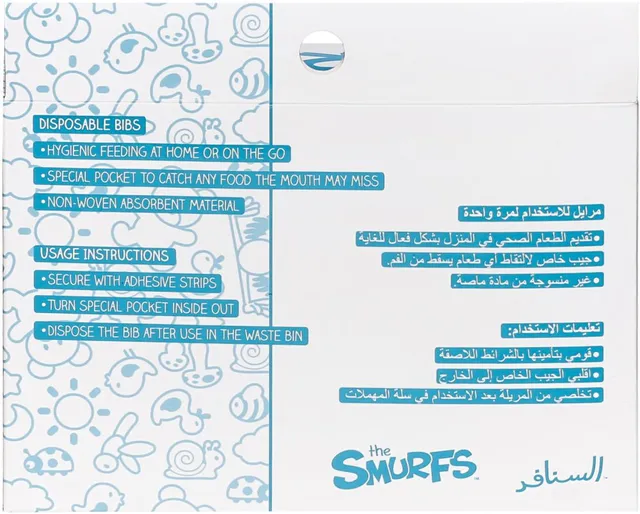 DISPOSABLE BIBS
• HYGIENIC FEEDING AT HOME OR ON THE GO
• SPECIAL POCKET TO CATCH ANY FOOD THE MOUTH MAY MISS
• NON-WOVEN ABSORBENT MATERIAL
USAGE INSTRUCTIONS
• SECURE WITH ADHESIVE STRIPS
• TURN SPECIAL POCKET INSIDE OUT
• DISPOSE THE BIB AFTER USE IN THE WASTE BIN
مرايل للاستخدام لمرة واحدة
• تقديم الطعام الصحي في المنزل بشكل فعال للغاية
• جيب خاص لالتقاط أي طعام يسقط من الفم.
• غير منسوجة من مادة ماصة.
تعليمات الاستخدام:
• قومي بتأمينها بالشرائط اللاصقة
• اقلبي الجيب الخاص إلى الخارج
• تخلصي من المريلة بعد الاستخدام في سلة المهملات
the
SMURFS™
السنافر